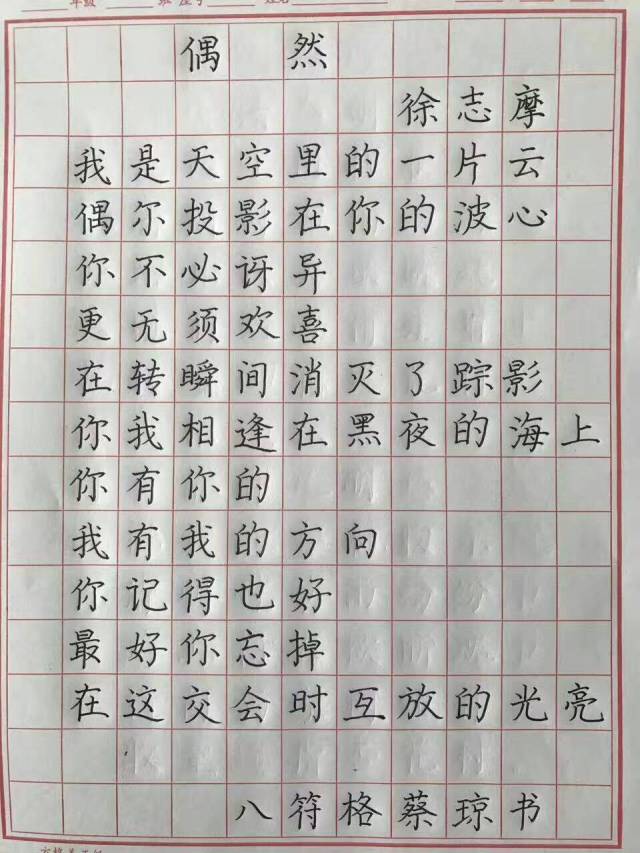 偶然
徐志摩
我是天空里的一片云
偶尔投影在你的波心
你不必讶异
更无须欢喜
在转瞬间消灭了踪影
你我相逢在黑夜的海上
你有你的
我有我的方向
你记得也好
最好你忘掉
在这交会时互放的光亮
八符格蔡琼书